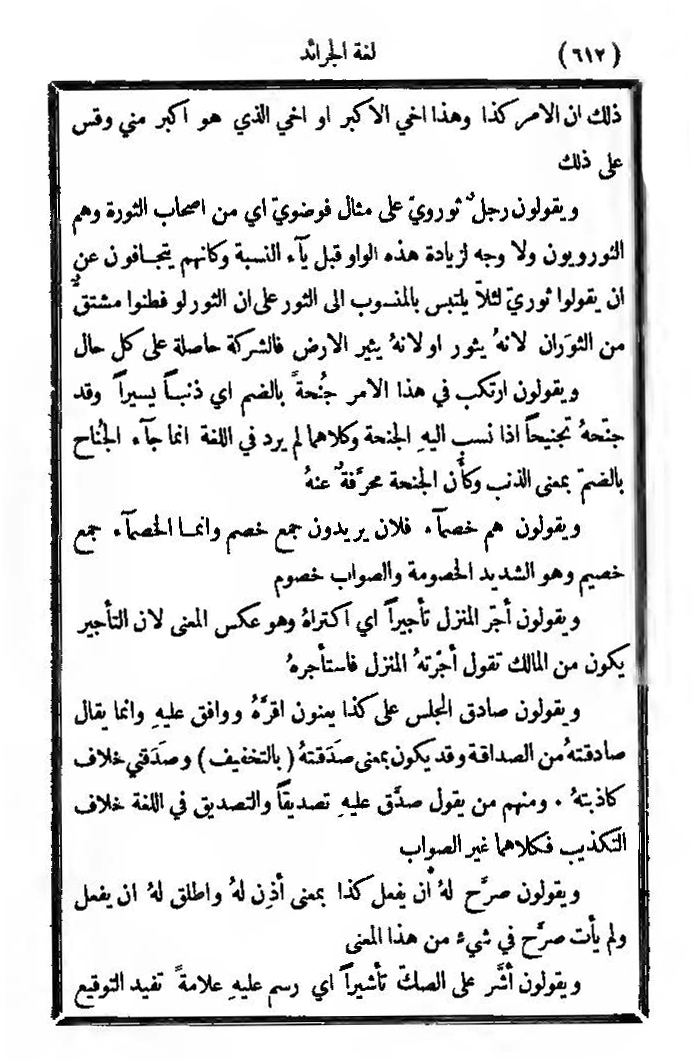 (٦١٢) لغة الجرائد
ذلك ان الامر كذا وهذا اخي الأكبر او اخي الذي هو اكبر مني وقس
على ذلك
ويقولون رجلٌ ثورويّ على مثال فوضويّ اي من اصحاب الثورة وهم
الثورويون ولا وجه لزيادة هذه الواو قبل يآء النسبة وكانهم يتجافون عن
ان يقولوا ثوريّ لئلاّ يلتبس بالمنسوب الى الثور على ان الثور لو فطنوا مشتقٌّ
من الثوَران لانهُ يثور او لانهُ يثير الارض فالشركة حاصلة على كل حال
ويقولون ارتكب في هذا الامر جُنحةً بالضم اي ذنباً يسيراً وقد
جنّحهُ تجنيحاً اذا نسب اليهِ الجنحة وكلاهما لم يرد في اللغة انما جآء الجُناح
بالضمّ بمعنى الذنب وكأن الجنحة محرَّفةٌ عنهُ
ويقولون هم خصمآء فلان يريدون جمع خصم وانما الخصمآء جمع
خصيم وهو الشديد الخصومة والصواب خصوم
ويقولون أجّر المنزل تأجيراً اي اكتراهُ وهو عكس المعنى لان التأجير
يكون من المالك تقول أجّرتهُ المنزل فاستأجرهُ
ويقولون صادق المجلس على كذا يعنون اقرَّهُ ووافق عليهِ وانما يقال
صادقتهُ من الصداقة وقد يكون بمعنى صدَقتهُ (بالتخفيف) وصدَقني خلاف
كاذبتهُ ٠ ومنهم من يقول صدَّق عليهِ تصديقاً والتصديق في اللغة خلاف
التكذيب فكلاهما غير الصواب
ويقولون صرَّح لهُ أن يفعل كذا بمعنى أذِن لهُ واطلق لهُ ان يفعل
ولم يأت صرَّح في شيءٍ من هذا المعنى
ويقولون أشَّر على الصكّ تأشيراً اي رسم عليهِ علامةً تفيد التوقيع